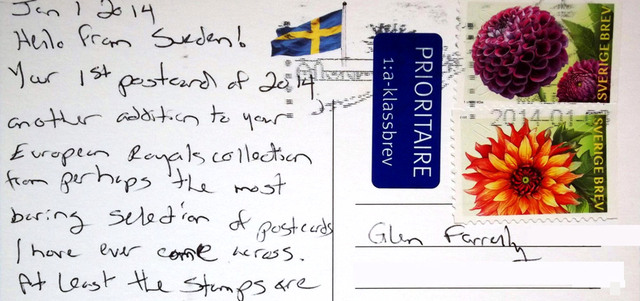 Jan 1 2014
Hello from Sweden!
Your 1st postcard of 2014
another addition to your
European Royals collection
from perhaps the most
boring selection of postcards
I have ever come across.
At least the stamps are
PRIORITAIRE
1:a-klassbrev
SVERIGE BREV
2014-01-0
SVERIGE BREV
Glen Farrelly